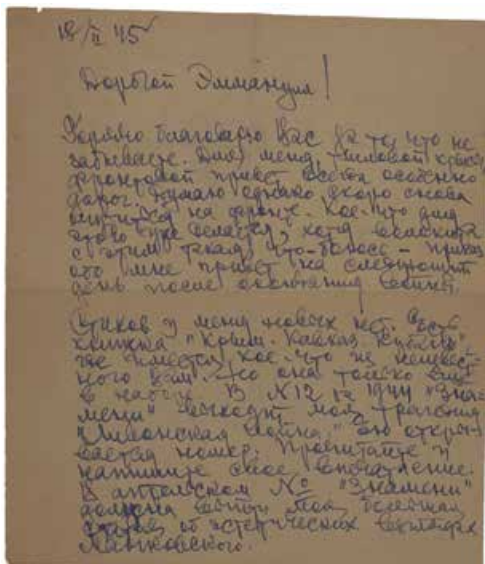 18/II 45
Дорогой Эммануил!
Горячо благодарю Вас за то, что не
забываете. Для меня, тыловой крысы,
фронтовой привет всегда особенно
дорог. Думаю однако скоро снова
на фронте. Кое-что для
этого уже делается, хотя
с этим такая, что боюсь – приказ
обо мне придет на следующий
день после окончания войны.
Стихов у меня новых нет. Есть
книжка "Крым. Кавказ. Кубань"
где имеется кое-что не извест-
ного Вам. Но она только еще
в наборе. В №12 за 1944 "Зна-
мени" выходит моя трагедия
"Ливонская война". Ею откры-
вается номер. Прочитайте и
напишите свое впечатление.
В апрельском № "Знамени"
должна выйти моя большая
статья об взглядах